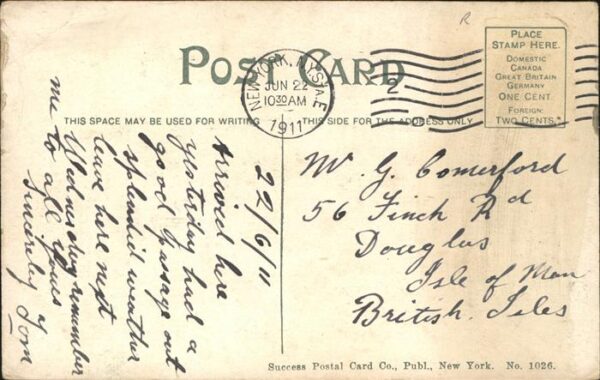 POST CARD
THIS SPACE MAY BE USED FOR WRITING
THIS SIDE FOR THE ADDRESS ONLY
PLACE
STAMP HERE.
DOMESTIC
CANADA
GREAT BRITAIN
GERMANY
ONE CENT
FOREIGN
TWO CENTS.
NEW YORK, N.Y. STA.E
JUN 22
10 30 AM
1911
2
R
22/6/11
Arrived here
yesterday had a
good passage out
splendid weather
leave here next
Wednesday remember
me to all Yours
Sincerely Tom
Mr G. Comerford
56 Finch Rd
Douglas
Isle of Man
British Isles
Success Postal Card Co., Publ., New York. No. 1026.